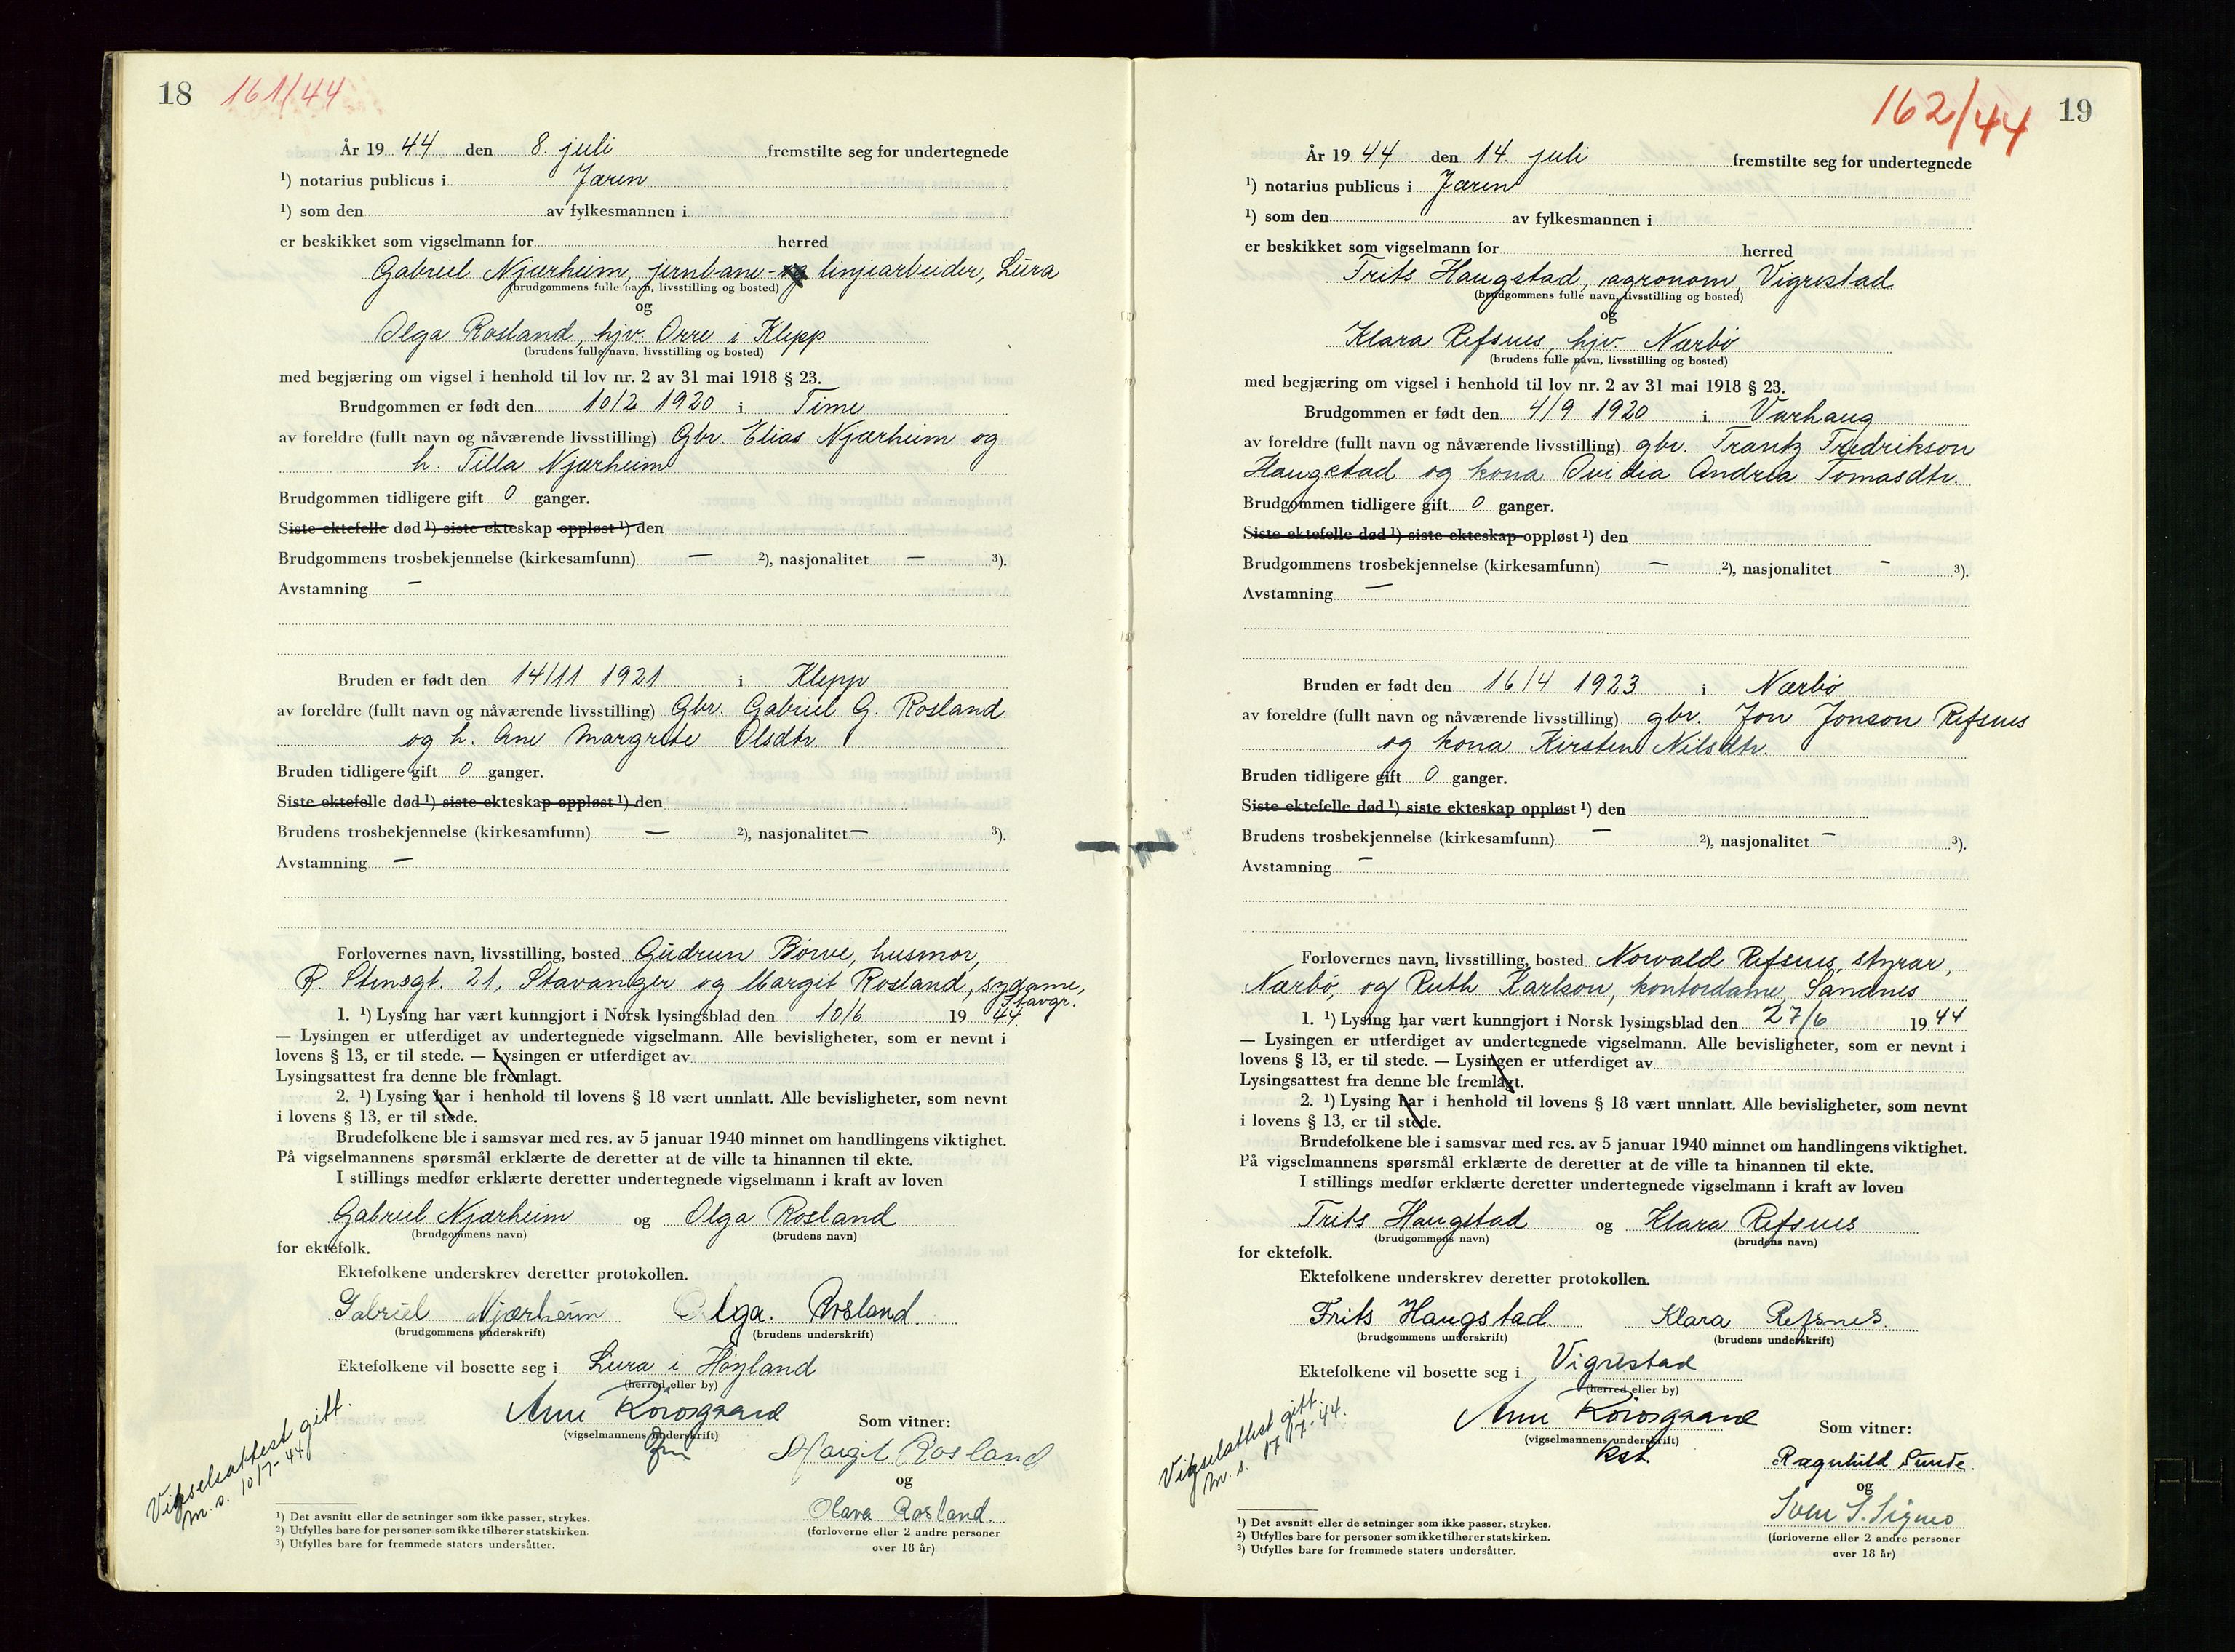 18 161/44
År 19 44 den 8. juli fremstilte seg for undertegnede
¹) notarius publicus i Jæren
¹) som den av fylkesmannen i
er beskikket som vigselmann for herred
Gabriel Njærheim, jernbane- og linjearbeider, Lura
(brudgommens fulle navn, livsstilling og bosted)
og
Olga Rosland, hjv. Orre i Klepp
(brudens fulle navn, livsstilling og bosted)
med begjæring om vigsel i henhold til lov nr. 2 av 31 mai 1918 § 23.
Brudgommen er født den 10/2 1920 i Time
av foreldre (fullt navn og nåværende livsstilling) Gbr. Elias Njærheim og
h. Tilla Njærheim
Brudgommen tidligere gift 0 ganger.
Siste ektefelle død ¹) siste ekteskap oppløst ¹) den
Brudgommens trosbekjennelse (kirkesamfunn) — ²), nasjonalitet — ³).
Avstamning —
Bruden er født den 14/11 1921 i Klepp
av foreldre (fullt navn og nåværende livsstilling) Gbr. Gabriel G. Rosland
og h. Ane Margrete Olsdtr.
Bruden tidligere gift 0 ganger.
Siste ektefelle død ¹) siste ekteskap oppløst ¹) den
Brudens trosbekjennelse (kirkesamfunn) — ²), nasjonalitet — ³).
Avstamning —
Forlovernes navn, livsstilling, bosted Gudrun Børve, husmor,
R. Stensgt. 21, Stavanger og Margit Rosland, sydame,
Stavgr.
1. ¹) Lysing har vært kunngjort i Norsk lysingsblad den 10/6 19 44.
— Lysingen er utferdiget av undertegnede vigselmann. Alle bevisligheter, som er nevnt i
lovens § 13, er til stede. — Lysingen er utferdiget av
Lysingsattest fra denne ble fremlagt.
2. ¹) Lysing har i henhold til lovens § 18 vært unnlatt. Alle bevisligheter, som nevnt
i lovens § 13, er til stede.
Brudefolkene ble i samsvar med res. av 5 januar 1940 minnet om handlingens viktighet.
På vigselmannens spørsmål erklærte de deretter at de ville ta hinannen til ekte.
I stillings medfør erklærte deretter undertegnede vigselmann i kraft av loven
Gabriel Njærheim og Olga Rosland
(brudgommens navn) (brudens navn)
for ektefolk.
Ektefolkene underskrev deretter protokollen.
Gabriel Njærheim Olga. Rosland.
(brudgommens underskrift) (brudens underskrift)
Ektefolkene vil bosette seg i Lura i Høyland
(herred eller by)
Vigselsattest gitt.
m. s. 10/7-44
(vigselmannens underskrift)
Som vitner:
Margit Rosland
og
Olava Rosland.
(forloverne eller 2 andre personer
over 18 år)
¹) Det avsnitt eller de setninger som ikke passer, strykes.
²) Utfylles bare for personer som ikke tilhører statskirken.
³) Utfylles bare for fremmede staters undersåtter.
162/44 19
År 19 44 den 14. juli fremstilte seg for undertegnede
¹) notarius publicus i Jæren
¹) som den av fylkesmannen i
er beskikket som vigselmann for herred
Frits Haugstad, agronom, Vigrestad
(brudgommens fulle navn, livsstilling og bosted)
og
Klara Refsnes, hjv. Nærbø
(brudens fulle navn, livsstilling og bosted)
med begjæring om vigsel i henhold til lov nr. 2 av 31 mai 1918 § 23.
Brudgommen er født den 4/9 1920 i Varhaug
av foreldre (fullt navn og nåværende livsstilling) gbr. Frantz Fredrikson
Haugstad og kona Ovidia Andrea Tomasdtr.
Brudgommen tidligere gift 0 ganger.
Siste ektefelle død ¹) siste ekteskap oppløst ¹) den
Brudgommens trosbekjennelse (kirkesamfunn) — ²), nasjonalitet - ³).
Avstamning —
Bruden er født den 16/4 1923 i Nærbø
av foreldre (fullt navn og nåværende livsstilling) gbr. Jon Jonson Refsnes
og kona Kirsten Nilsdtr.
Bruden tidligere gift 0 ganger.
Siste ektefelle død ¹) siste ekteskap oppløst ¹) den
Brudens trosbekjennelse (kirkesamfunn) — ²), nasjonalitet — ³).
Avstamning —
Forlovernes navn, livsstilling, bosted Norvald Refsnes, styrar,
Nærbø, og Ruth Karlson, kontordame, Sandnes
1. ¹) Lysing har vært kunngjort i Norsk lysingsblad den 27/6 19 44
— Lysingen er utferdiget av undertegnede vigselmann. Alle bevisligheter, som er nevnt i
lovens § 13, er til stede. — Lysingen er utferdiget av
Lysingsattest fra denne ble fremlagt.
2. ¹) Lysing har i henhold til lovens § 18 vært unnlatt. Alle bevisligheter, som nevnt
i lovens § 13, er til stede.
Brudefolkene ble i samsvar med res. av 5 januar 1940 minnet om handlingens viktighet.
På vigselmannens spørsmål erklærte de deretter at de ville ta hinannen til ekte.
I stillings medfør erklærte deretter undertegnede vigselmann i kraft av loven
Frits Haugstad og Klara Refsnes
(brudgommens navn) (brudens navn)
for ektefolk.
Ektefolkene underskrev deretter protokollen.
Frits Haugstad. Klara Refsnes.
(brudgommens underskrift) (brudens underskrift)
Ektefolkene vil bosette seg i Vigrestad
(herred eller by)
Vigselattest gitt
m. s. 17/7-44.
(vigselmannens underskrift)
kst.
Som vitner:
Ragnhild Sunde.
og
(forloverne eller 2 andre personer
over 18 år)
¹) Det avsnitt eller de setninger som ikke passer, strykes.
²) Utfylles bare for personer som ikke tilhører statskirken.
³) Utfylles bare for fremmede staters undersåtter.